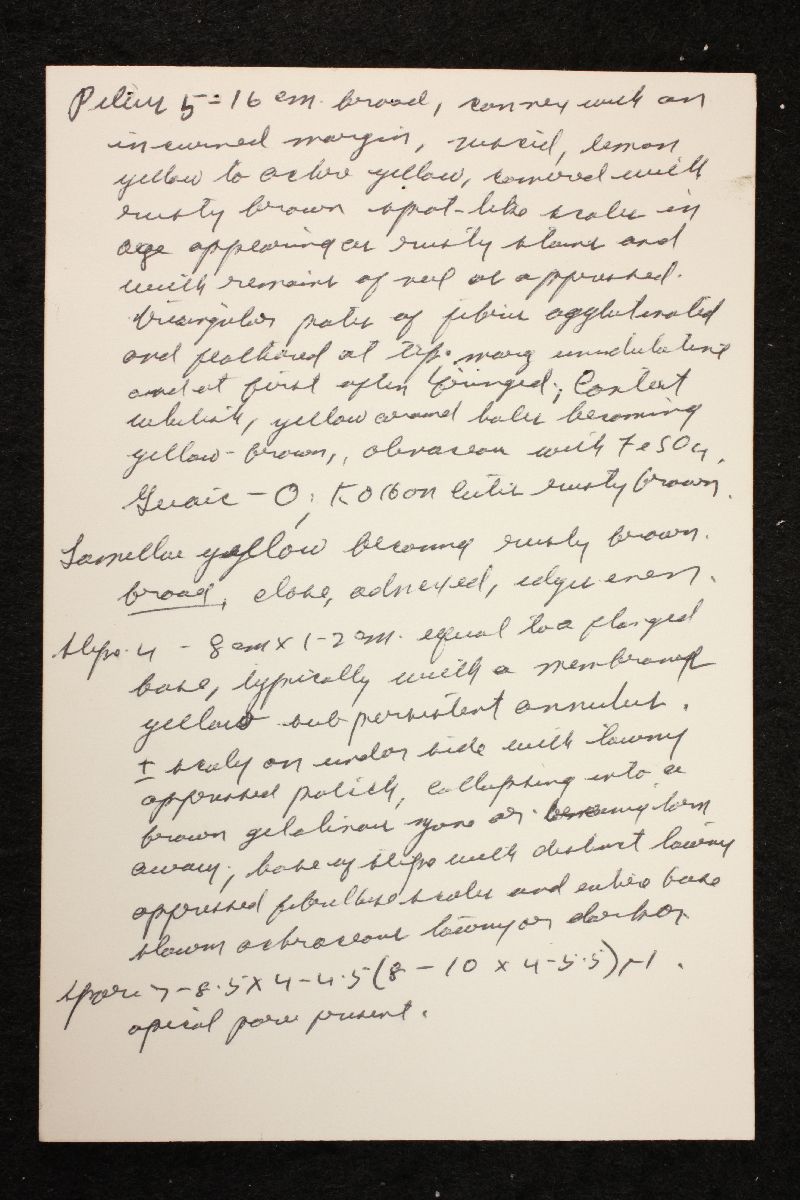 Pileus 5-16 cm. broad, convex with an
incurved margin, viscid, lemon
yellow to ochre yellow, covered with
rusty brown spot-like scales in
age appearing as rusty stains and
with remains of veil as appressed
triangular patches of fibrils agglutinated
and feathered at tip. marg undulating
and at first often fringed; Context
whitish, yellow around holes becoming
yellow-brown, olivaceous with FeSO4,
Guaic - O; KOH on cutis rusty brown.
Lamellae yellow becoming rusty brown.
broad, close, adnexed, edges even.
Stipe 4 - 8 cm x 1-2 cm. equal to a
base, typically with a membranous
yellow sub persistent annulus.
± scaly on under side with tawny
appressed patches, collapsing into a
brown gelatinous zone or torn
away; base of stipe with distinct tawny
appressed fibrillose scales and entire base
ochraceous tawny or darker
Spores 7-8.5 x 4-4.5 (8 - 10 x 4-5.5)
apical pore present.